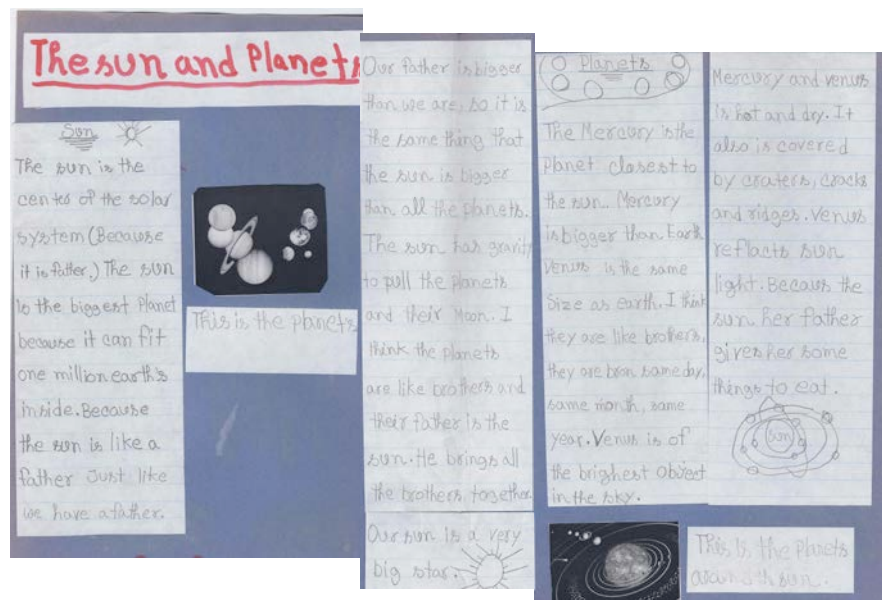 The sun and Planets
Sun
The sun is the
center of the solar
system (Because
it is father.) The sun
is the biggest Planet
because it can fit
one million earth's
inside. Because
the sun is like a
father Just like
we have a father.
This is the planets
Our father is bigger
than we are, so it is
the same thing that
the sun is bigger
than all the planets.
The sun has gravity
to pull the planets
and their Moon. I
think the planets
are like brothers and
their father is the
sun. He brings all
the brothers together
Our sun is a very
big star.
Planets
The Mercury is the
planet closest to
the sun. Mercury
is bigger than Earth
Venus is the same
Size as earth. I think
they are like brothers,
they are bron same day,
same month, same
year. Venus is of
the brighest object
in the sky.
Mercury and venus
is hot and dry. It
also is covered
by craters, cracks
and ridges. Venus
reflacts sun
light. Becaus the
sun her father
gives her some
things to eat.
Sun
This is the planets
around the sun.